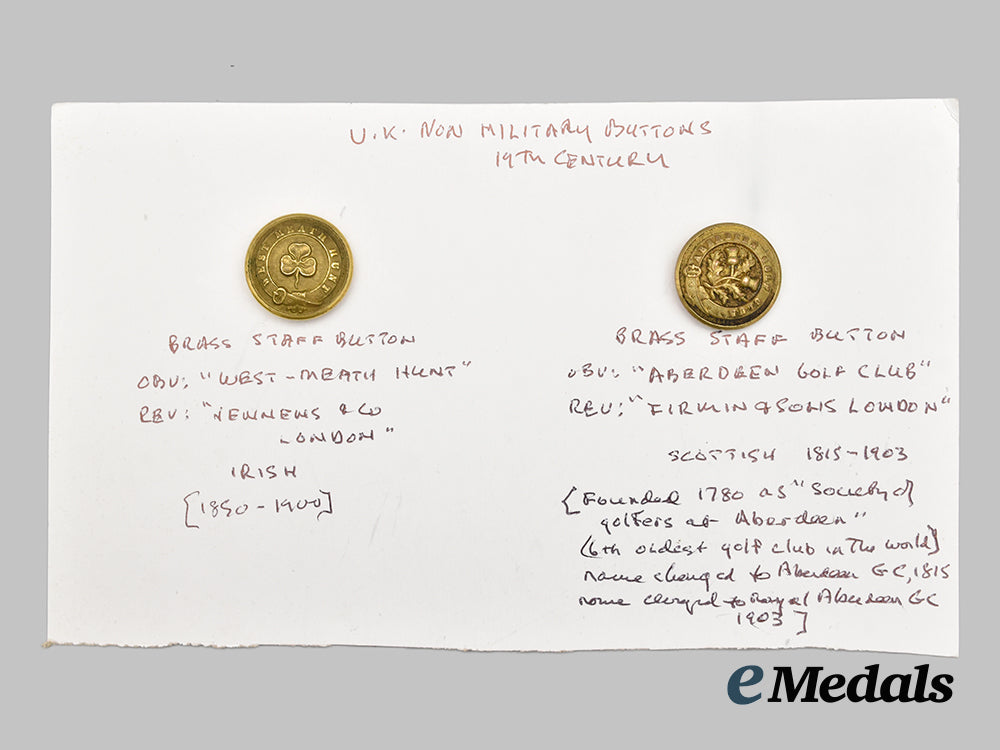 U.K. NON MILITARY BUTTONS
19TH CENTURY
WEST MEATH HUNT
BRASS STAFF BUTTON
OBV: "WEST-MEATH HUNT"
REV: "JENNENS & CO
LONDON"
IRISH
[1850-1900]
BRASS STAFF BUTTON
OBV: "ABERDEEN GOLF CLUB"
REV: "FIRMIN & SONS LONDON"
SCOTTISH 1815-1903
[Founded 1780 as "Society of
golfers at Aberdeen"
(6th oldest golf club in The world)
name changed to Aberdeen GC, 1815
name changed to Royal Aberdeen GC
1903]
eMedals